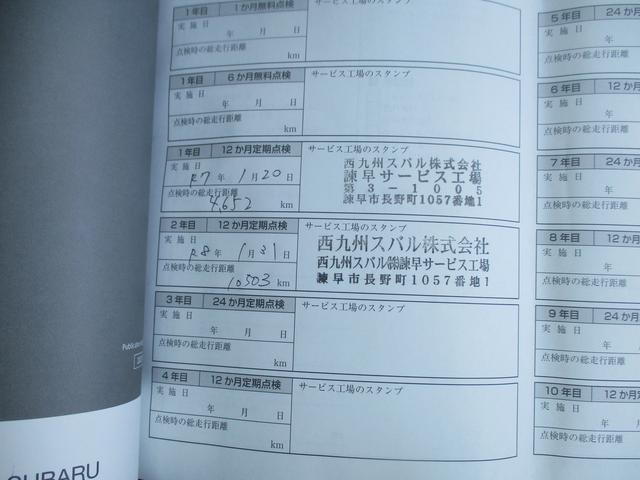 1年目 1か月無料点検
実施日
年 月 日
点検時の総走行距離
km
サービス工場のスタンプ
1年目 6か月無料点検
実施日
年 月 日
点検時の総走行距離
km
サービス工場のスタンプ
1年目 12か月定期点検
実施日
R7年 1月20日
点検時の総走行距離
4,652 km
サービス工場のスタンプ
西九州スバル株式会社
諫早サービス工場
第3-1005
諫早市長野町1057番地1
2年目 12か月定期点検
実施日
R8年 1月31日
点検時の総走行距離
10503 km
サービス工場のスタンプ
西九州スバル株式会社
西九州スバル㈱諫早サービス工場
諫早市長野町1057番地1
3年目 24か月定期点検
実施日
年 月 日
点検時の総走行距離
km
サービス工場のスタンプ
4年目 12か月定期点検
実施日
年 月 日
点検時の総走行距離
km
サービス工場のスタンプ
5年目 24か
実施日
年
点検時の総走行距離
6年目 12か
実施日
年
点検時の総走行距離
7年目 24か
実施日
年
点検時の総走行距離
8年目 12か
実施日
年
点検時の総走行距離
9年目 24か
実施日
年
点検時の総走行距離
10年目 12か
実施日
年
点検時の総走行距離
SUBARU